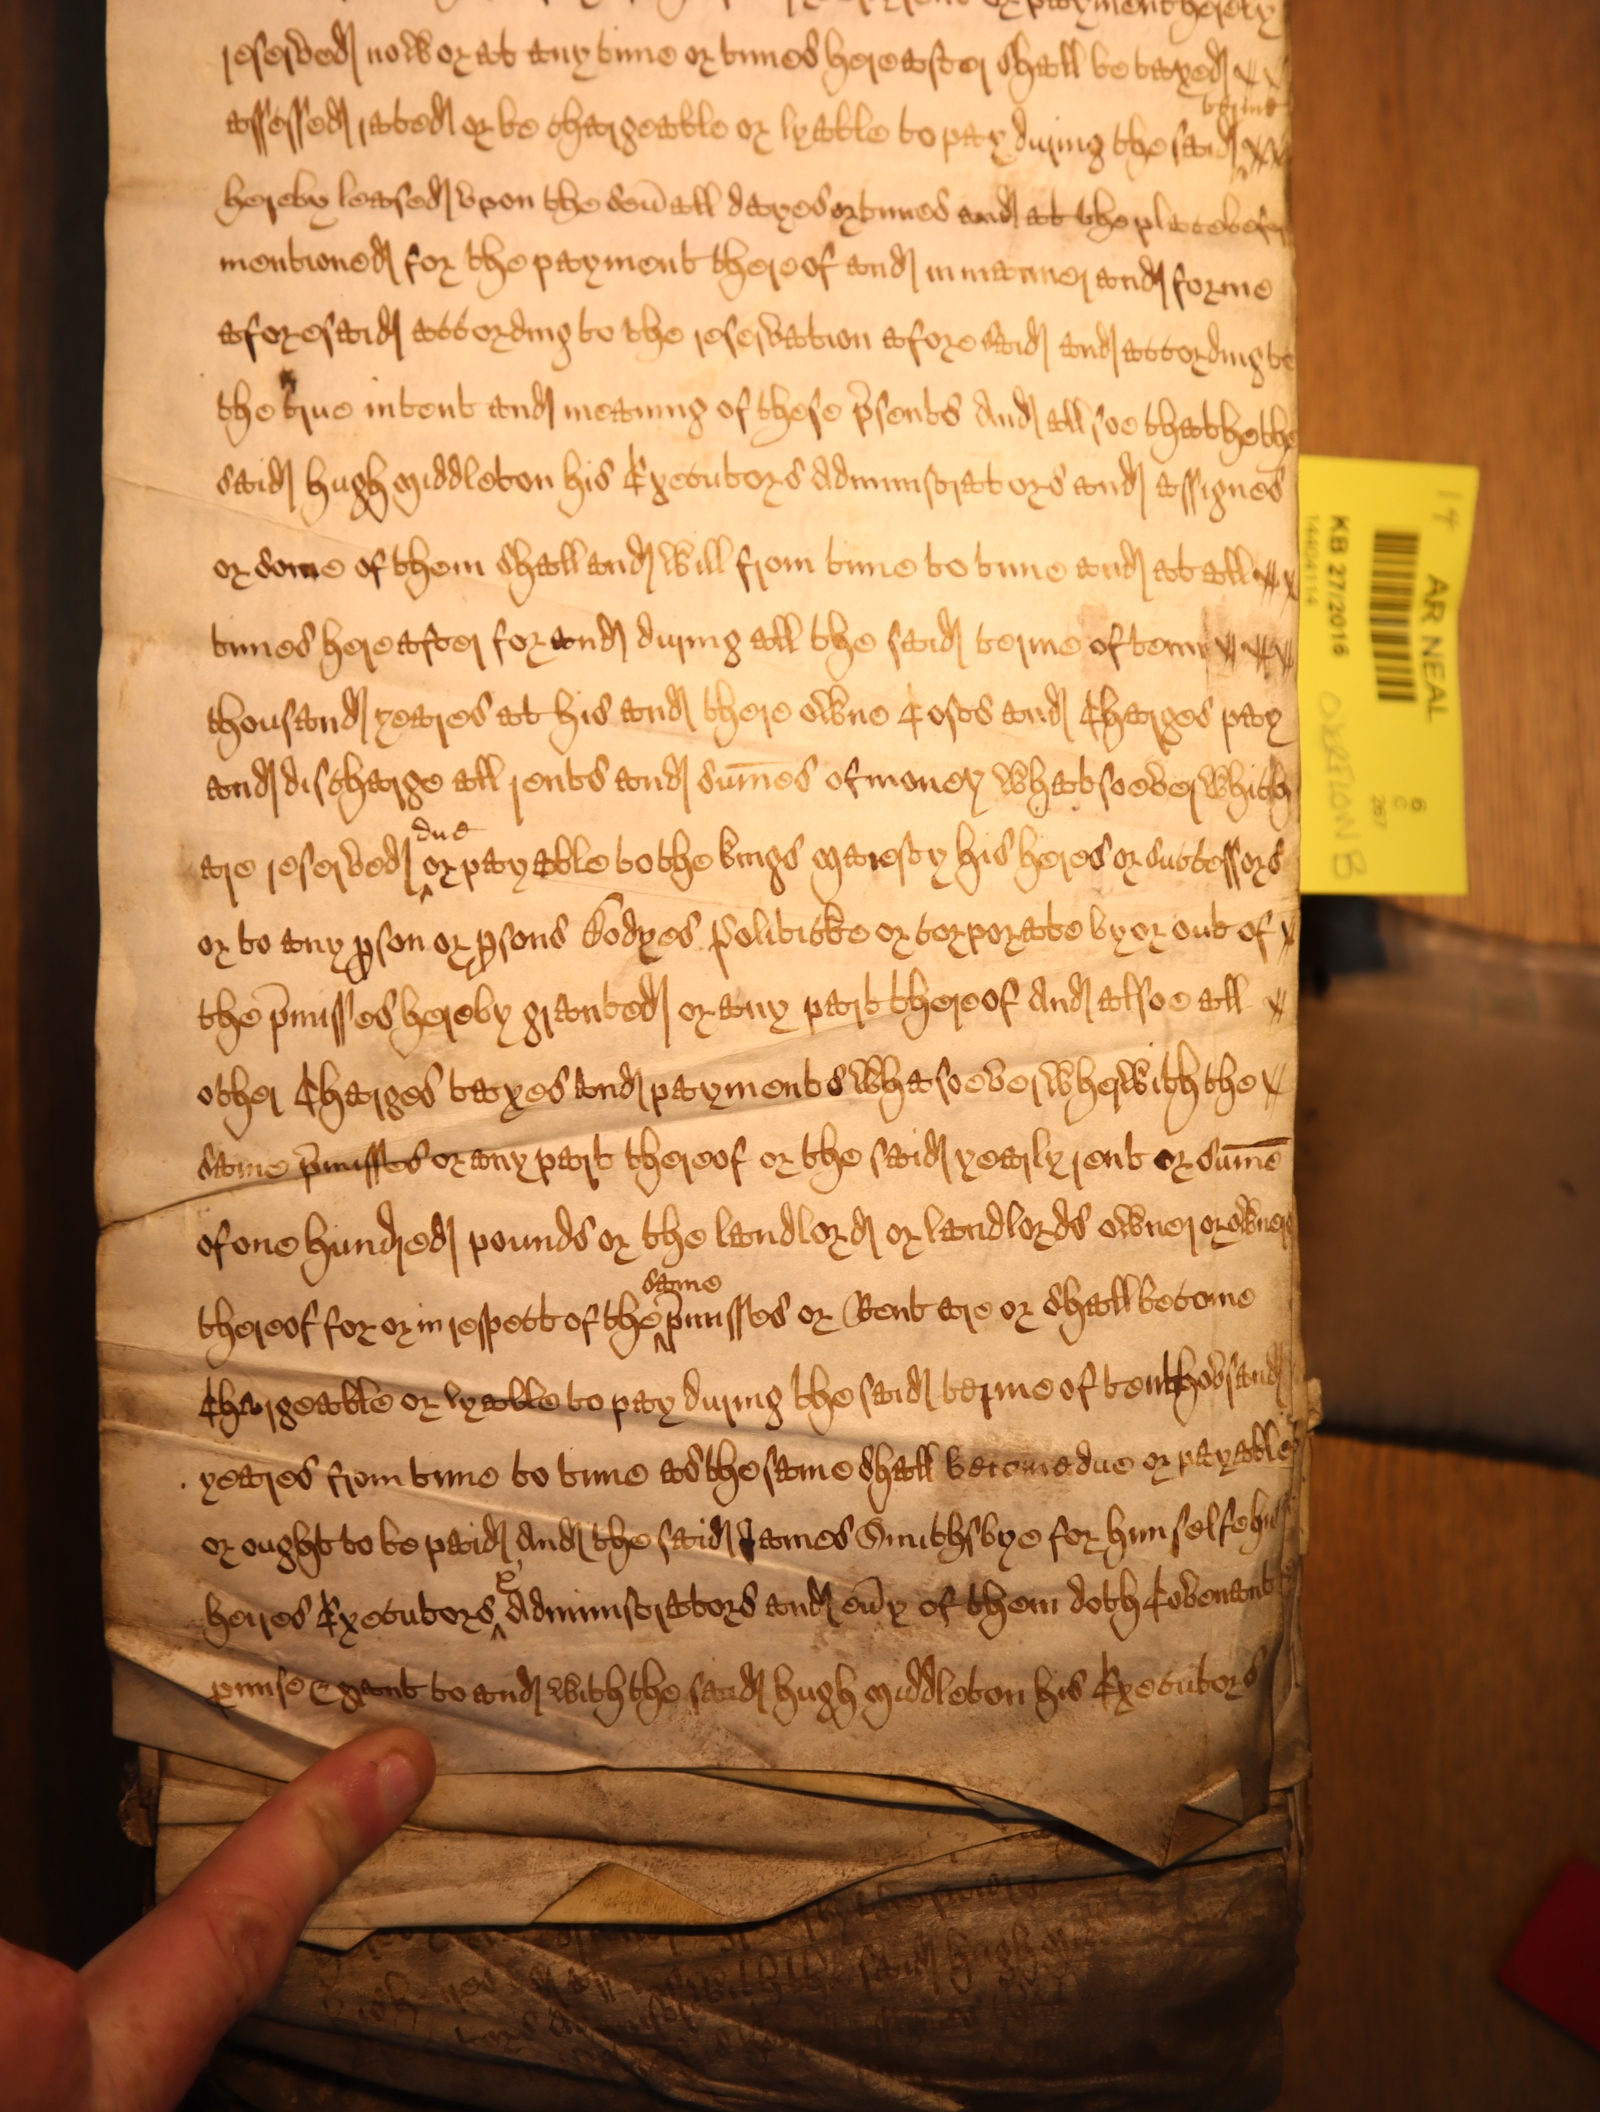 payment hereby
reserved now or at any time or times hereafter shall be taxed
assessed rated or be chargeable or lyable to pay during the said terme
hereby leased vpon the seuall dayes or times and at the place before
mentioned for the payment thereof and in manner and forme
aforesaid according to the reservation aforesaid and according to
the true intent and meaning of these psents And allsoe that he the
said hugh Middleton his Executors Administrators and assignes
or some of them shall and will from time to time and at all
times hereafter for and during all the said terme of tenn
thousand yeares at his and there owne Costs and Charges pay
and discharge all rents and sumes of money whatsoever which
are reserved due or payable to the kings Maiesty his heres or successors
or to any pson or psons Bodyes Politicke or corporate by or out of
the pmisses hereby granted or any part thereof And alsoe all
other Charges taxes and payments whatsoever wherwith the
same pmisses or any part thereof or the said yearly rent or sume
of one hundred pounds or the landlord or landlords owner or owners
thereof for or in respect of the same pmisses or Rent are or shall become
Chargeable or lyable to pay during the said terme of ten thovsand
yeares from time to time as the same shall become due or payable
or ought to be paid And the said James Smithsbye for himselfe his
heires Executors & Administrators and euy of them doth Covenant
pmise & grant to and with the said hugh Middleton his Executors
AR NEAL
KB 27/2016
14404114
OVERFLOW B
267